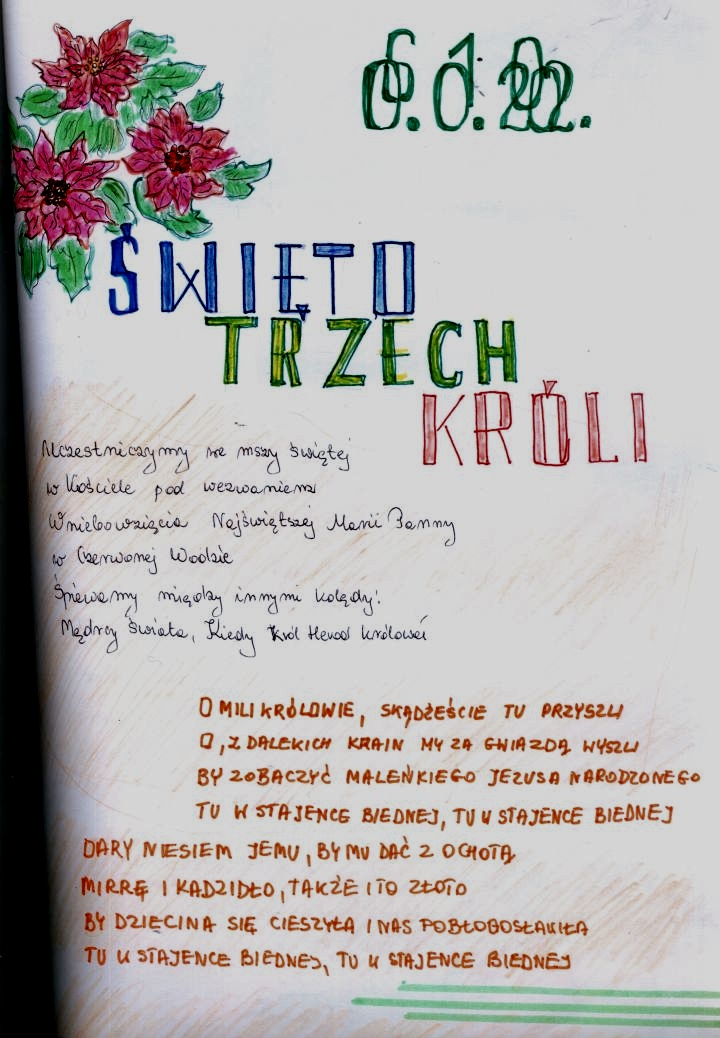 ŚWIĘTO
TRZECH
KRÓLI
Uczestniczymy we mszy świętej
w Kościele pod wezwaniem
Wniebowzięcia Najświętszej Marii Panny
w Czerwonej Wodzie
Śpiewamy między innymi kolędy:
Mędrcy Świata, Kiedy Król Herod królował
O MILI KRÓLOWIE, SKĄDŻEŚCIE TU PRZYSZLI
O, Z DALEKICH KRAIN MY ZA GWIAZDĄ WYSZLI
BY ZOBACZYĆ MALEŃKIEGO JEZUSA NARODZONEGO
TU W STAJENCE BIEDNEJ, TU W STAJENCE BIEDNEJ
DARY NIESIEM JEMU, BY MU DAĆ Z OCHOTĄ
MIRRĘ I KADZIDŁO, TAKŻE I TO ZŁOTO
BY DZIĘCINA SIĘ CIESZYŁA I NAS POBŁOGOSŁAWIŁA
TU W STAJENCE BIEDNEJ, TU W STAJENCE BIEDNEJ